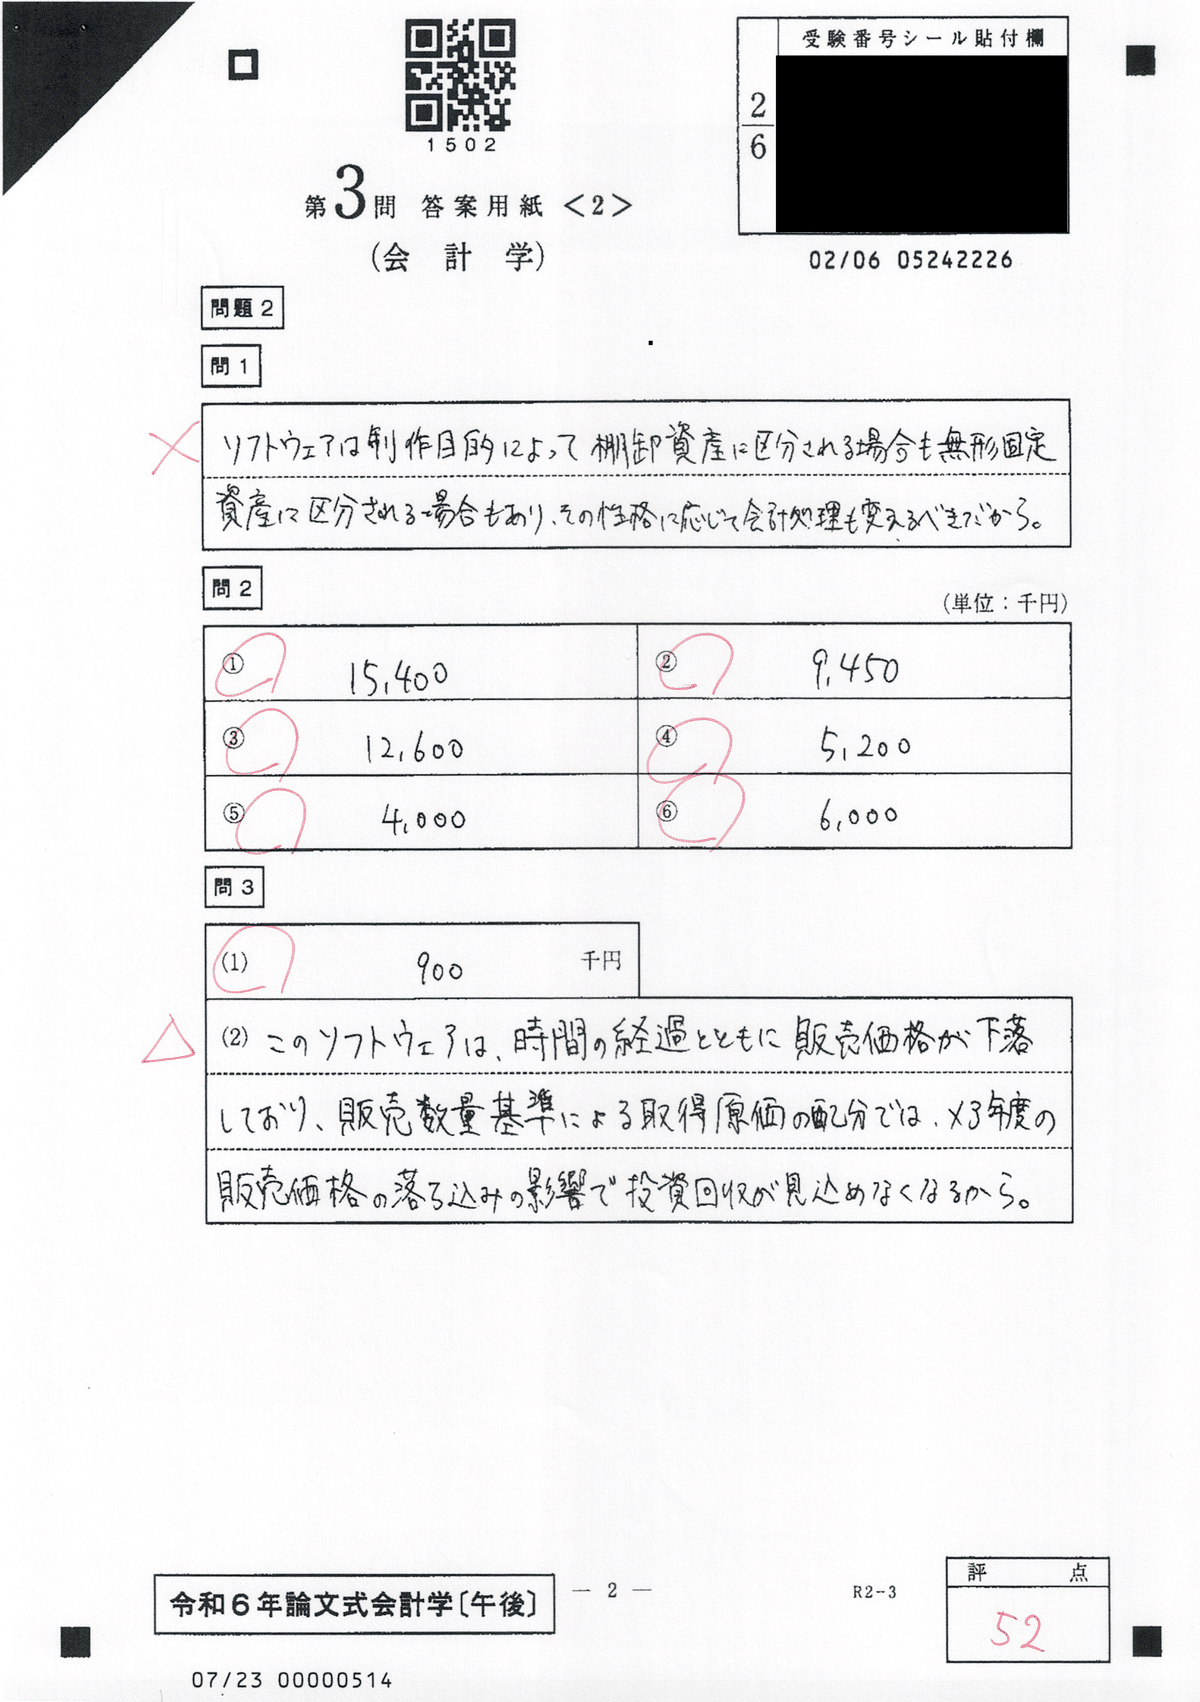 1502
受験番号シール貼付欄
2
6
第3問 答案用紙<2>
(会計学)
02/06 05242226
問題2
問1
ソフトウェアは制作目的によって棚卸資産に区分される場合も無形固定
資産に区分される場合もあり、その性格に応じて会計処理も変えるべきだから。
問2
(単位:千円)
① 15,400 ② 9,450
③ 12,600 ④ 5,200
⑤ 4,000 ⑥ 6,000
問3
(1) 900 千円
(2) このソフトウェアは、時間の経過とともに販売価格が下落
しており、販売数量基準による取得原価の配分では、×3年度の
販売価格の落ち込みの影響で投資回収が見込めなくなるから。
令和6年論文式会計学〔午後〕
― 2 ―
R2-3
評点
52
07/23 00000514